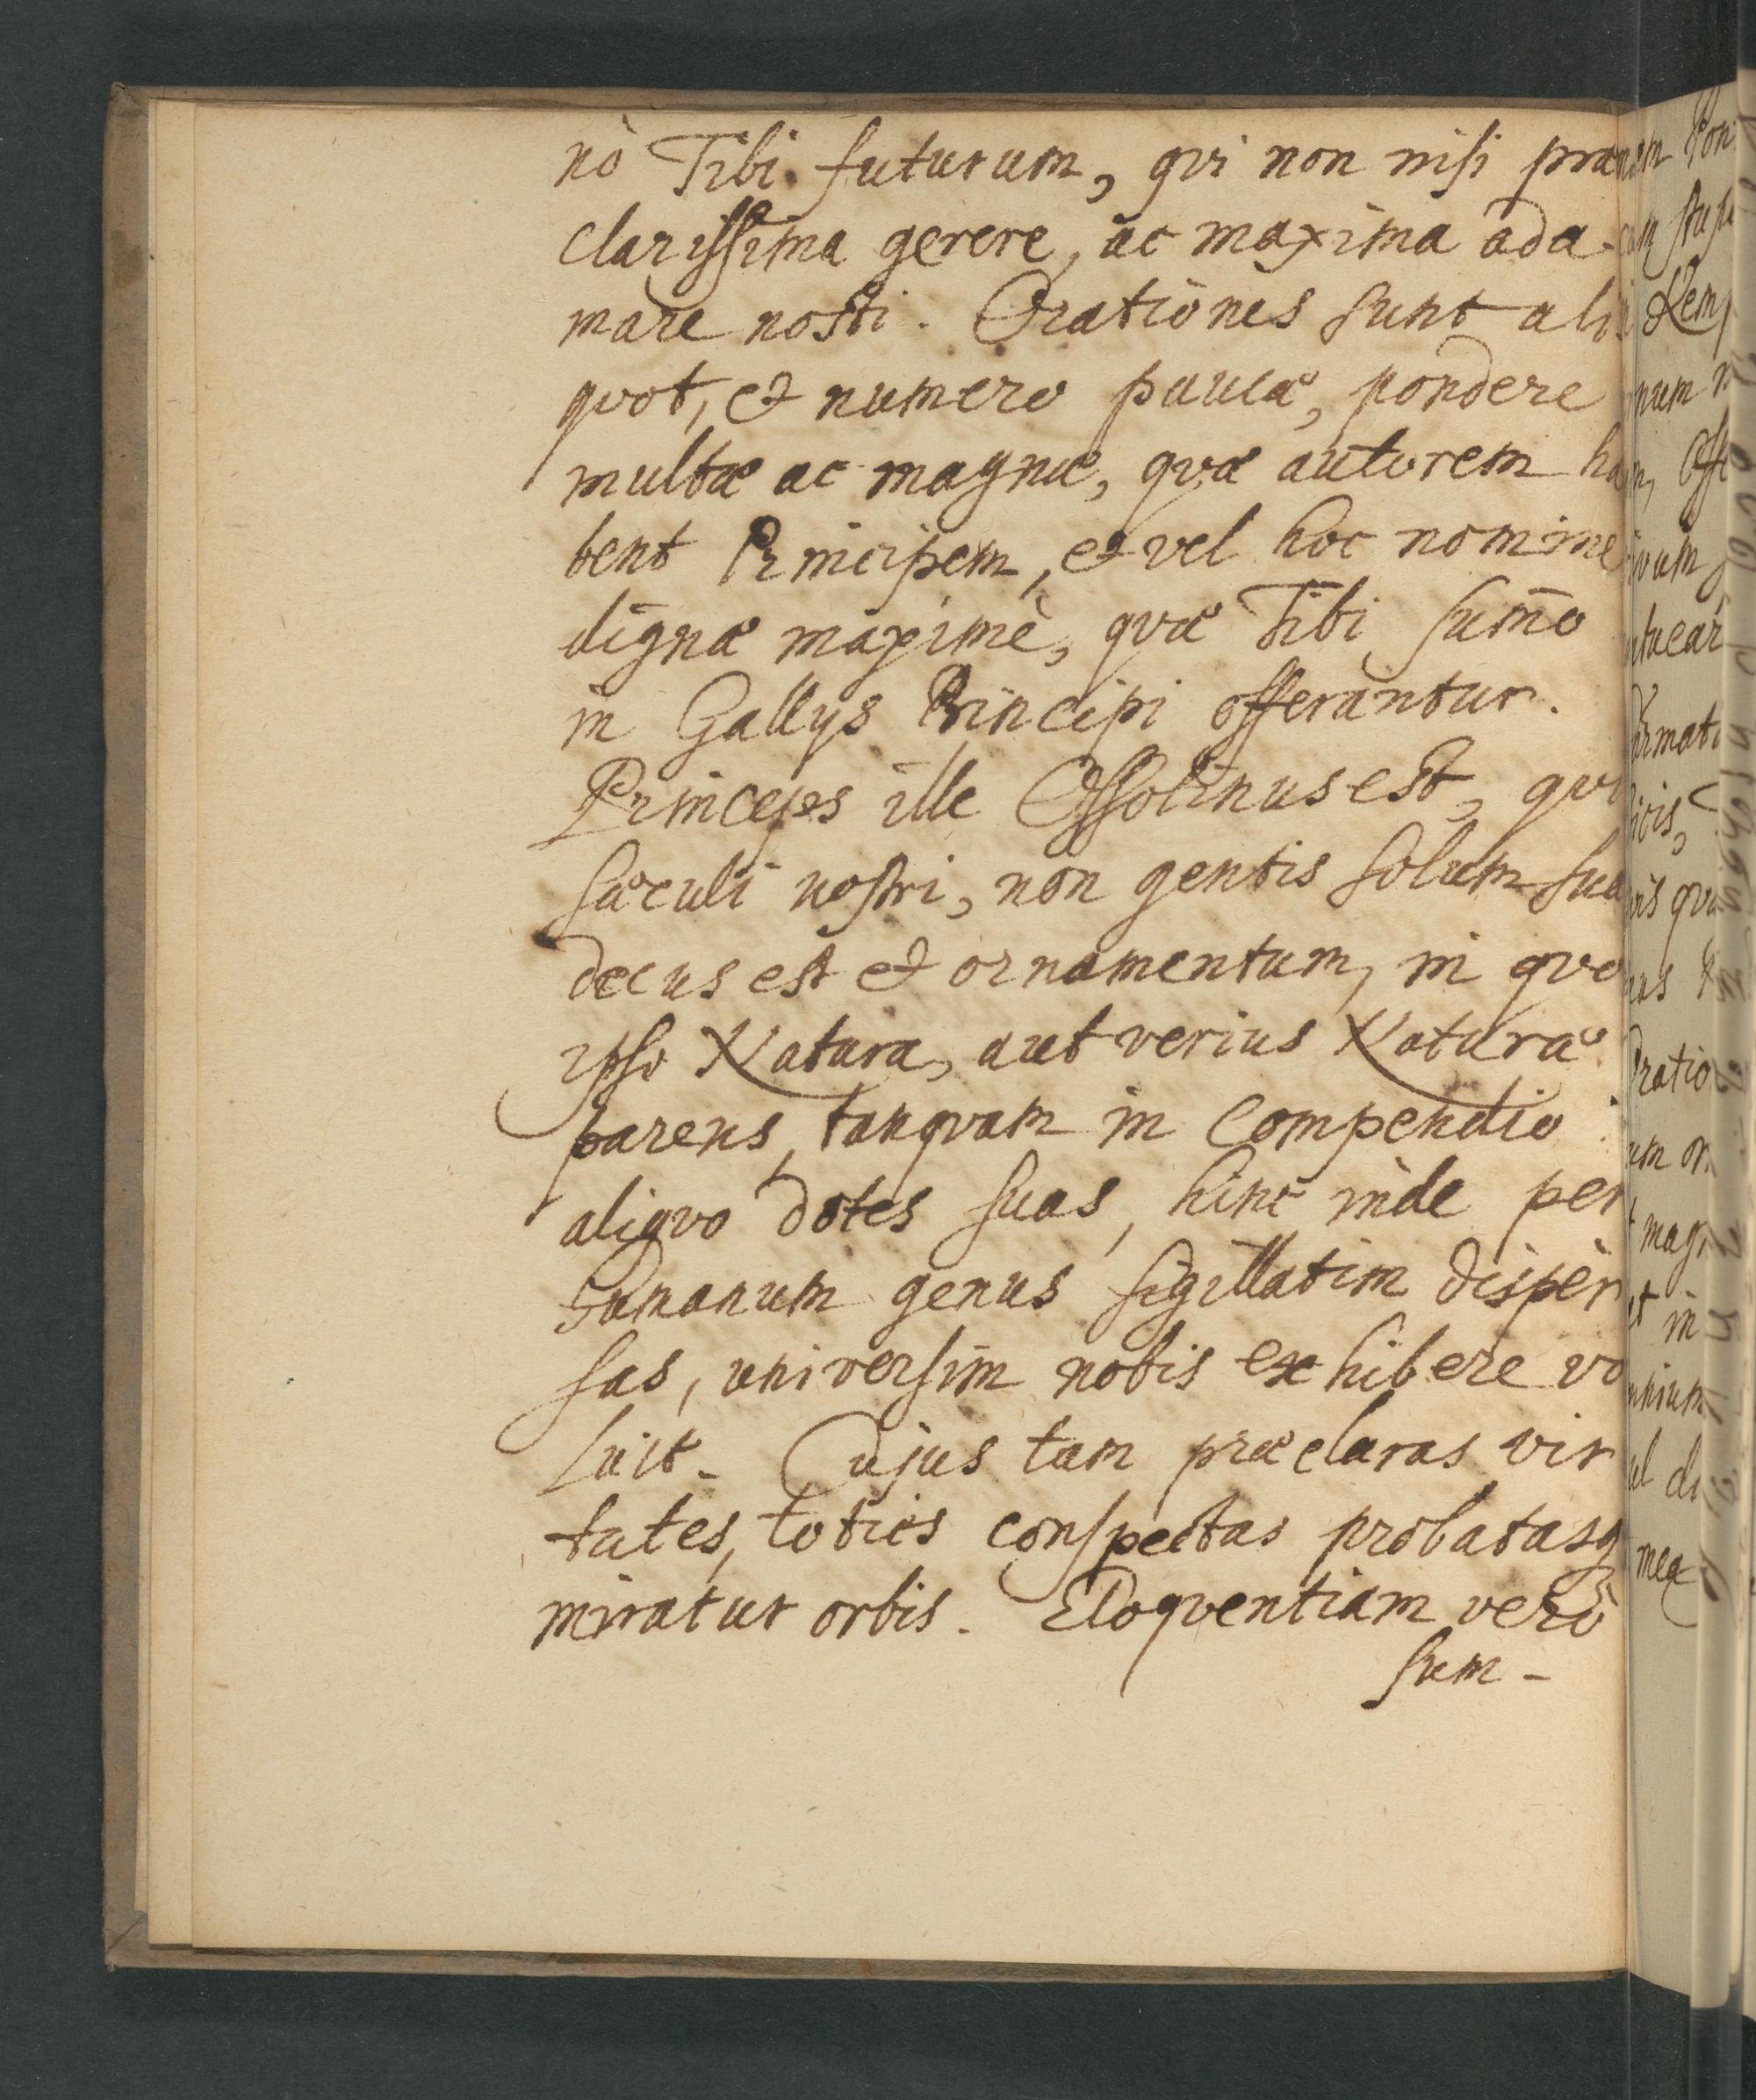 nò Tibi futurum, qvi non nisi præ
clarissima gerere, ac maxima ada-
mare nosti. Orationes sunt ali
qvot, et numero paucæ, pondere
multæ ac magnæ, qvæ autorem ha
bent Principem, et vel hoc nomine
dignæ maximè, qvæ Tibi sum̄o
in Gallijs Principi offerantur.
Princeps ille Ossolinus est, qvi
sæculi nostri, non gentis solum suæ
decus est et ornamentum, in qvo
ipso Natura, aut verius Naturæ
parens, tanqvam in compendio
aliqvo dotes suas, hinc inde per
humanum genus sigillatim disper
sas, universim nobis exhibere vo
luit. Cujus tam præclaras vir
tutes, toties conspectas probatasq
miratur orbis. Eloqventiam verò
sum-